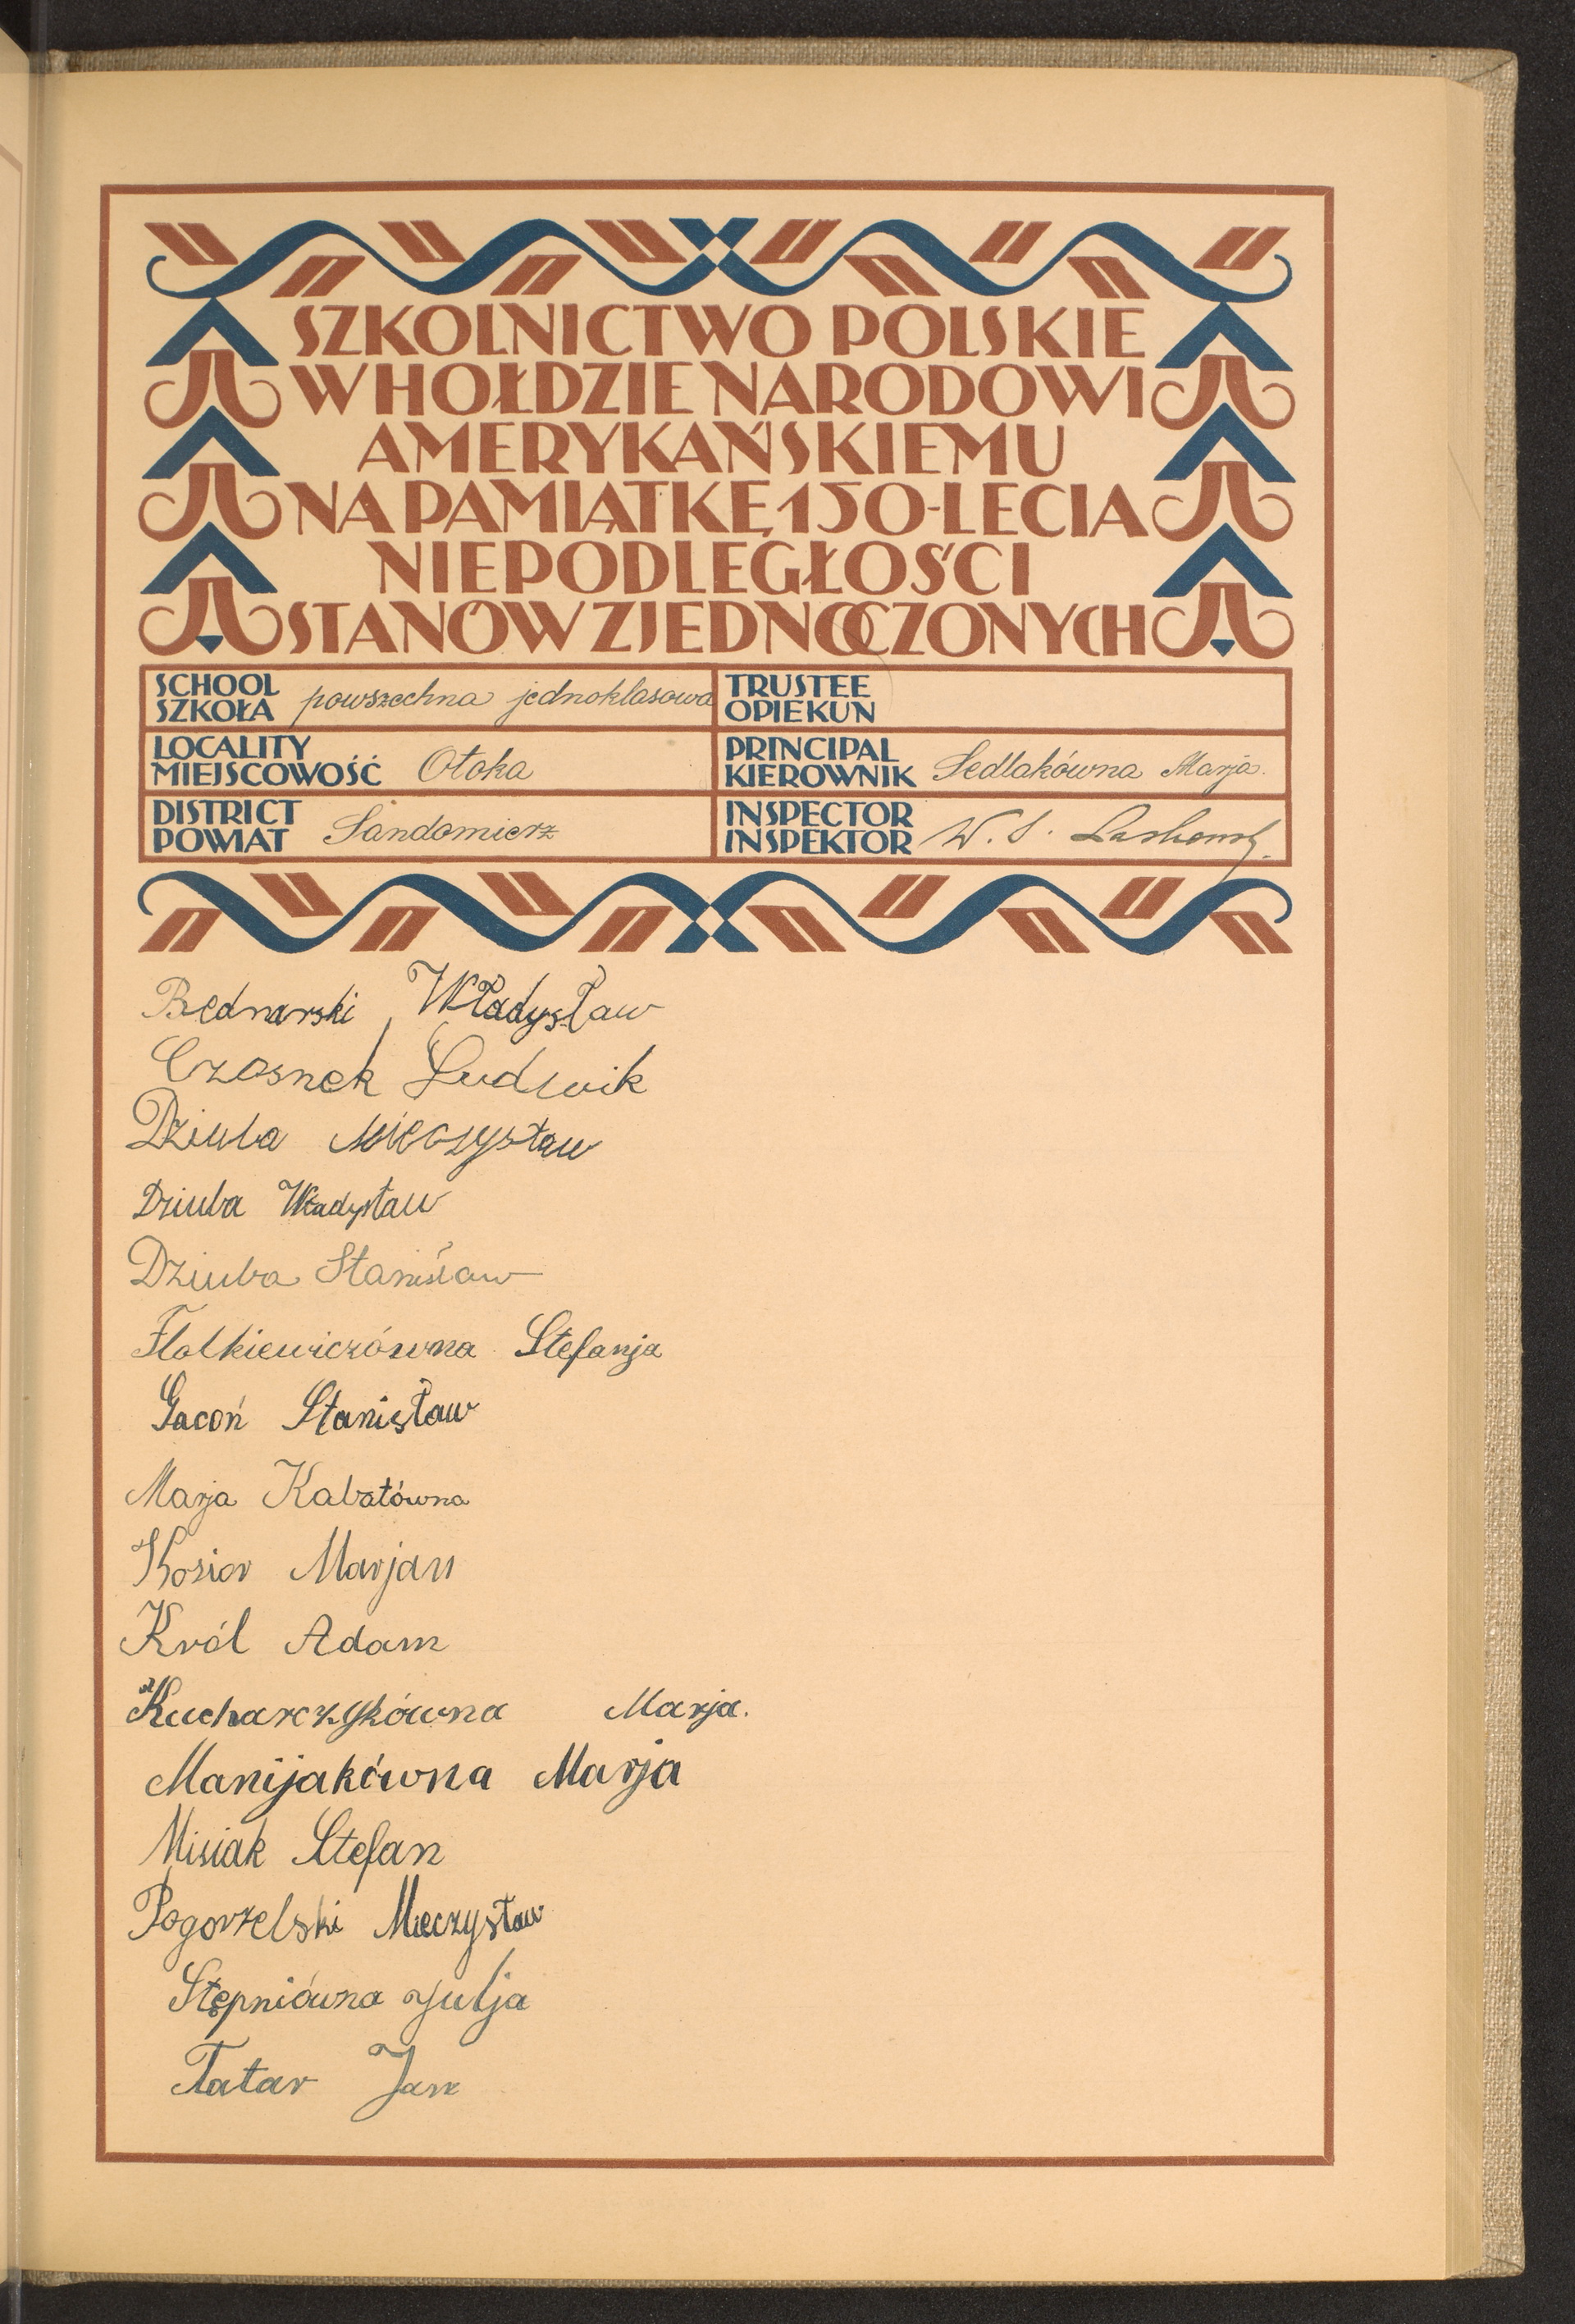 SZKOLNICTWO POLSKIE
W HOŁDZIE NARODOWI
AMERYKAŃSKIEMU
NA PAMIĄTKĘ 150-LECIA
NIEPODLEGŁOŚCI
STANÓW ZJEDNOCZONYCH
SCHOOL
SZKOŁA powszechna jednoklasowa
TRUSTEE
OPIEKUN
LOCALITY
MIEJSCOWOŚĆ Otoka
PRINCIPAL
KIEROWNIK Sedlakówna Marja.
DISTRICT
POWIAT Sandomierz
INSPECTOR
INSPEKTOR W. S.
Bednarski Władysław
Czosnek Ludwik
Dziuba Mieczysław
Dziuba Władysław
Dziuba Stanisław
Flolkiewiczówna Stefanja
Gacoń Stanisław
Marja Kabatówna
Kosior Marjan
Król Adam
Kucharczykówna Marja.
Manijakówna Marja
Misiak Stefan
Pogorzelski Mieczysław
Stępniówna Julja
Tatar Jan